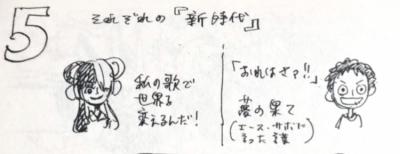 5
それぞれの『新時代』
私の歌で
世界を
変えるんだ!
「おれはさァ!!」
夢の果て
(エース・サボに
言った言葉